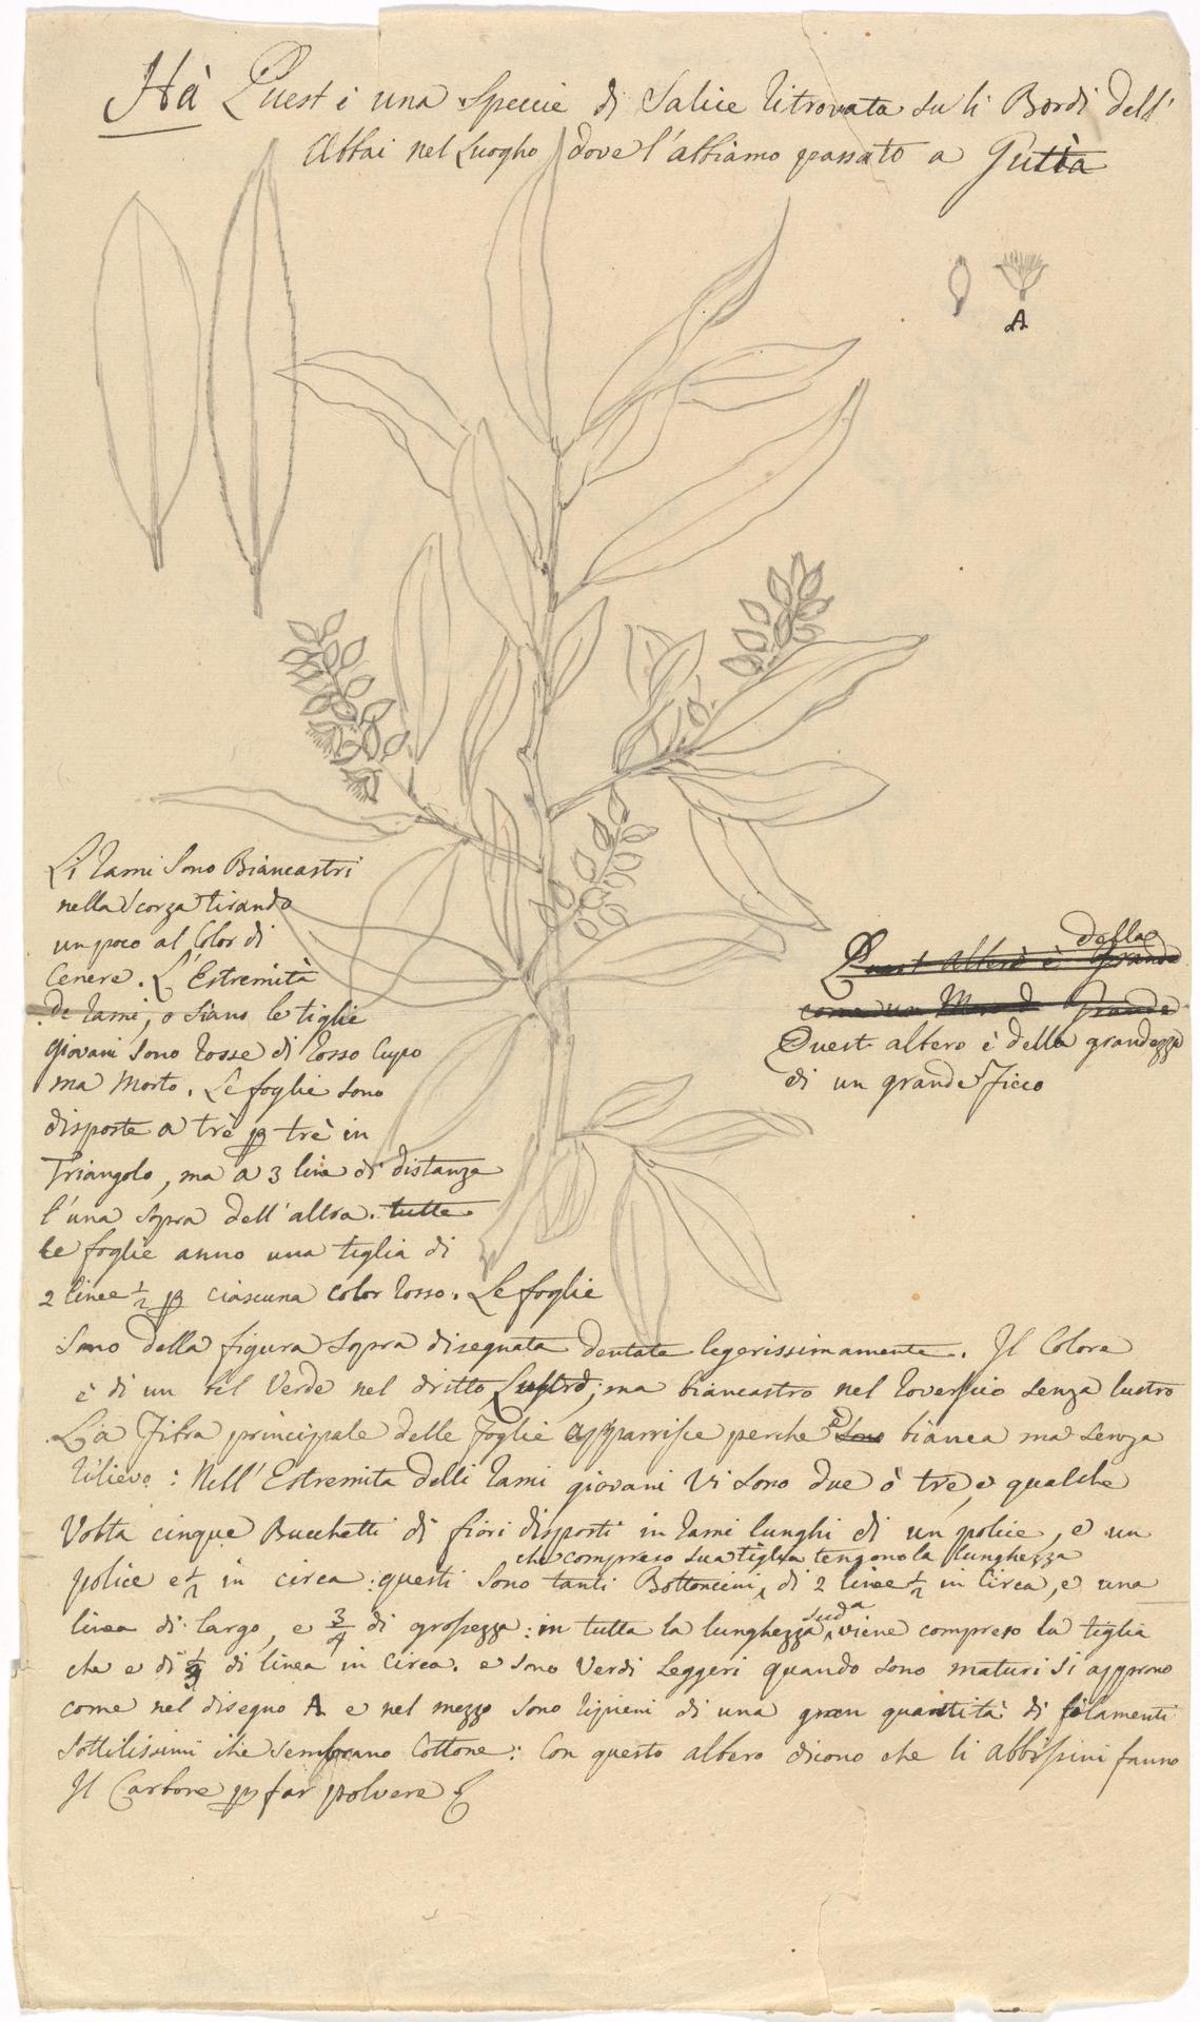 Hà Quest è una Specie di Salice Ritrovata su li Bordi dell'
Abbai nel Luogho dove l'abbiamo passato a Gutta
A
Li Rami Sono Biancastri
nella scorza tirando
un poco al Color di
Cenere. L'Estremità
De Rami, o siano le tiglie
giovani sono rosse di rosso cupo
ma morto. Le foglie sono
disposte a trè p trè in
Triangolo, ma a 3 linè di distanza
l'una sopra dell'altra. tutte
le foglie anno una tiglia di
2 linee 1/2 p ciascuna color rosso. Le foglie
della
Quest altero è Grande
come un Grande
Quest altero è della grandezza
di un grande Fico
Sono della figura sopra disegnata dentate legerissimamente. Il Colore
è di un bel Verde nel dritto Lustro; ma biancastro nel roverscio senza lustro
La Fibra principale delle foglie apparrisce perche è sono bianca ma senza
rilievo: Nell'Estremita delli Rami giovani vi sono due ò tre, e qualche
Volta cinque Bucchetti di fiori disposti in rami lunghi di un police, e un
che compreso sua tiglia tengono la lunghezza
police e 1/2 in circa: questi sono tanti Bottoncini di 2 linee 1/2 in Circa, e una
linea di largo, e 3/4 di grossezza: in tutta la lunghezza sudª viene compreso la tiglia
che e di 1/2 di linea in circa. e sono verdi Leggeri quando sono maturi si approno
come nel disegno A e nel mezzo sono ripieni di una gran quantità di filamenti
sottilissimi che sembrano Cottone: Con questo albero dicono che li abbissini fanno
Il Carbone p far polvere &